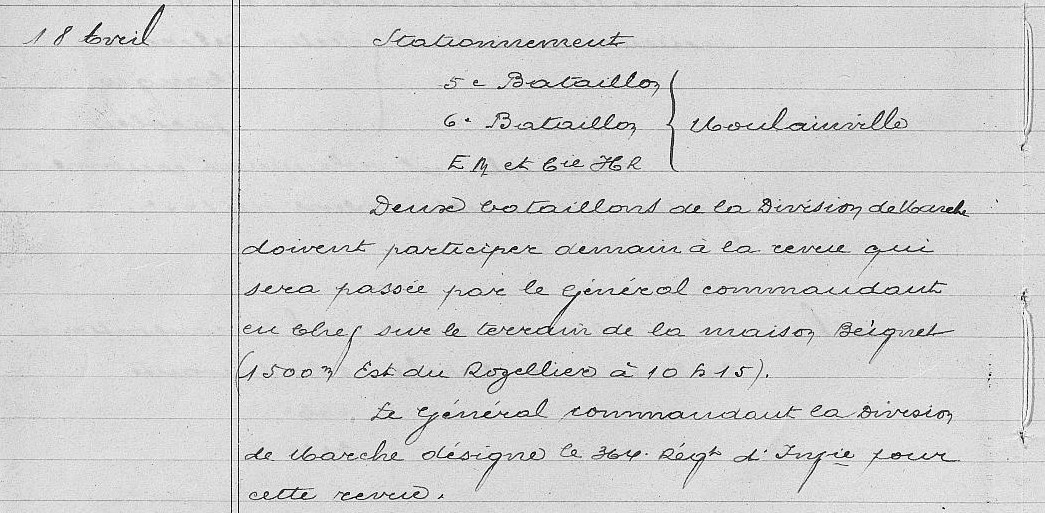 18 Avril
Stationnement
5e Bataillon
6e Bataillon
EM et Cie HR
} Moulainville
Deux bataillons de la Division de Marche
doivent participer demain à la revue qui
sera passée par le Général commandant
en Chef sur le terrain de la maison Beignet
(1500m Est du Rozellier à 10 h 15).
Le Général commandant la Division
de Marche désigne le 364. Régt d'Infie pour
cette revue.